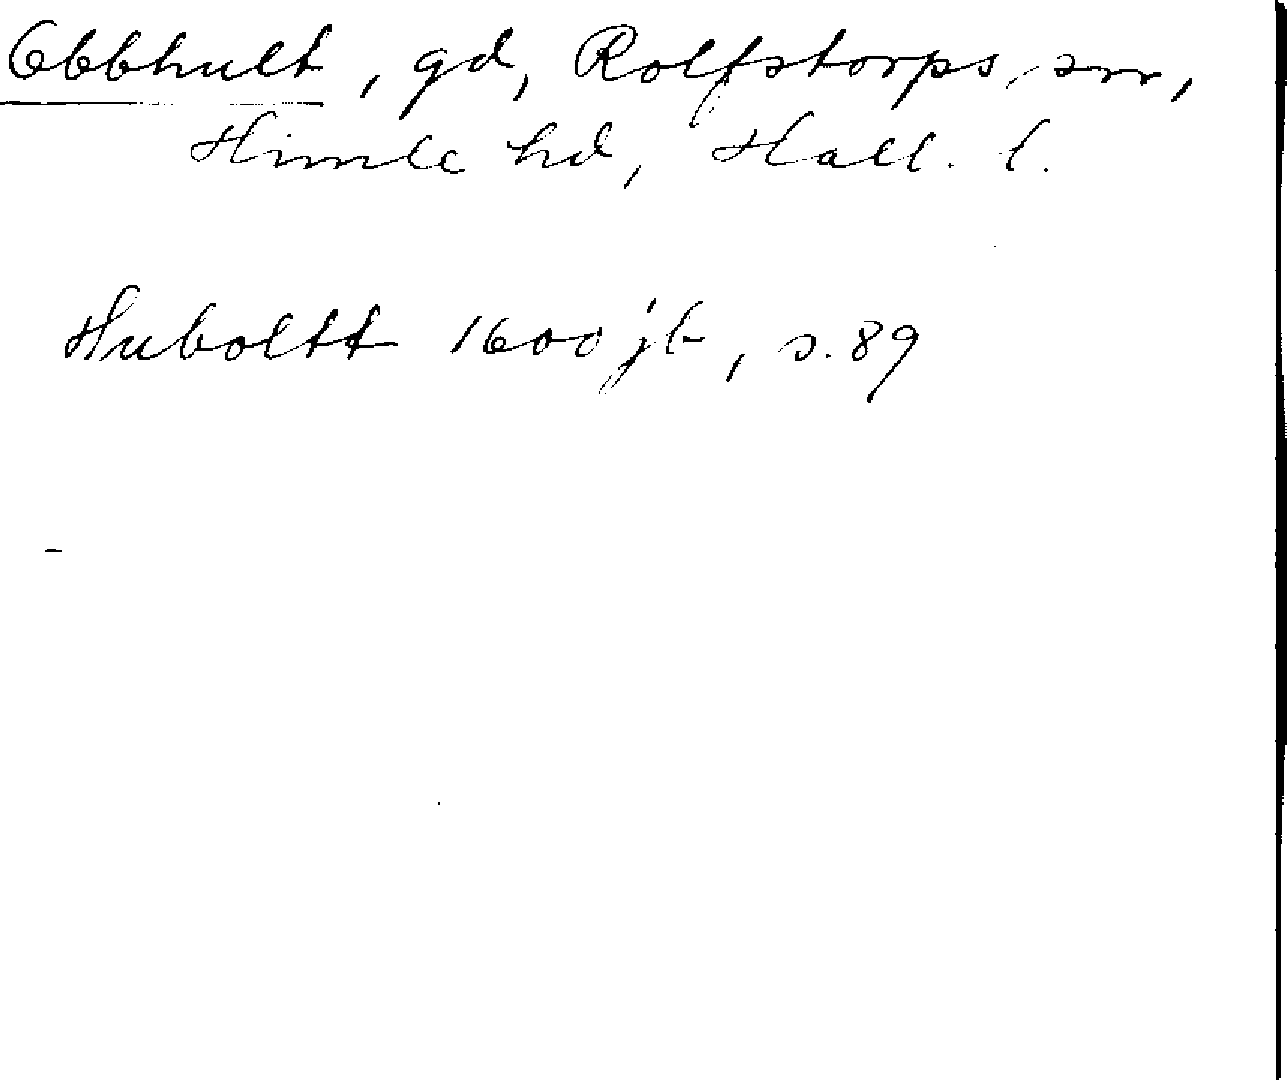 Obbhult, gd, Rolfstorps sn,
Himle hd, Hall. l.
Huboltt 1600 jb, s. 89